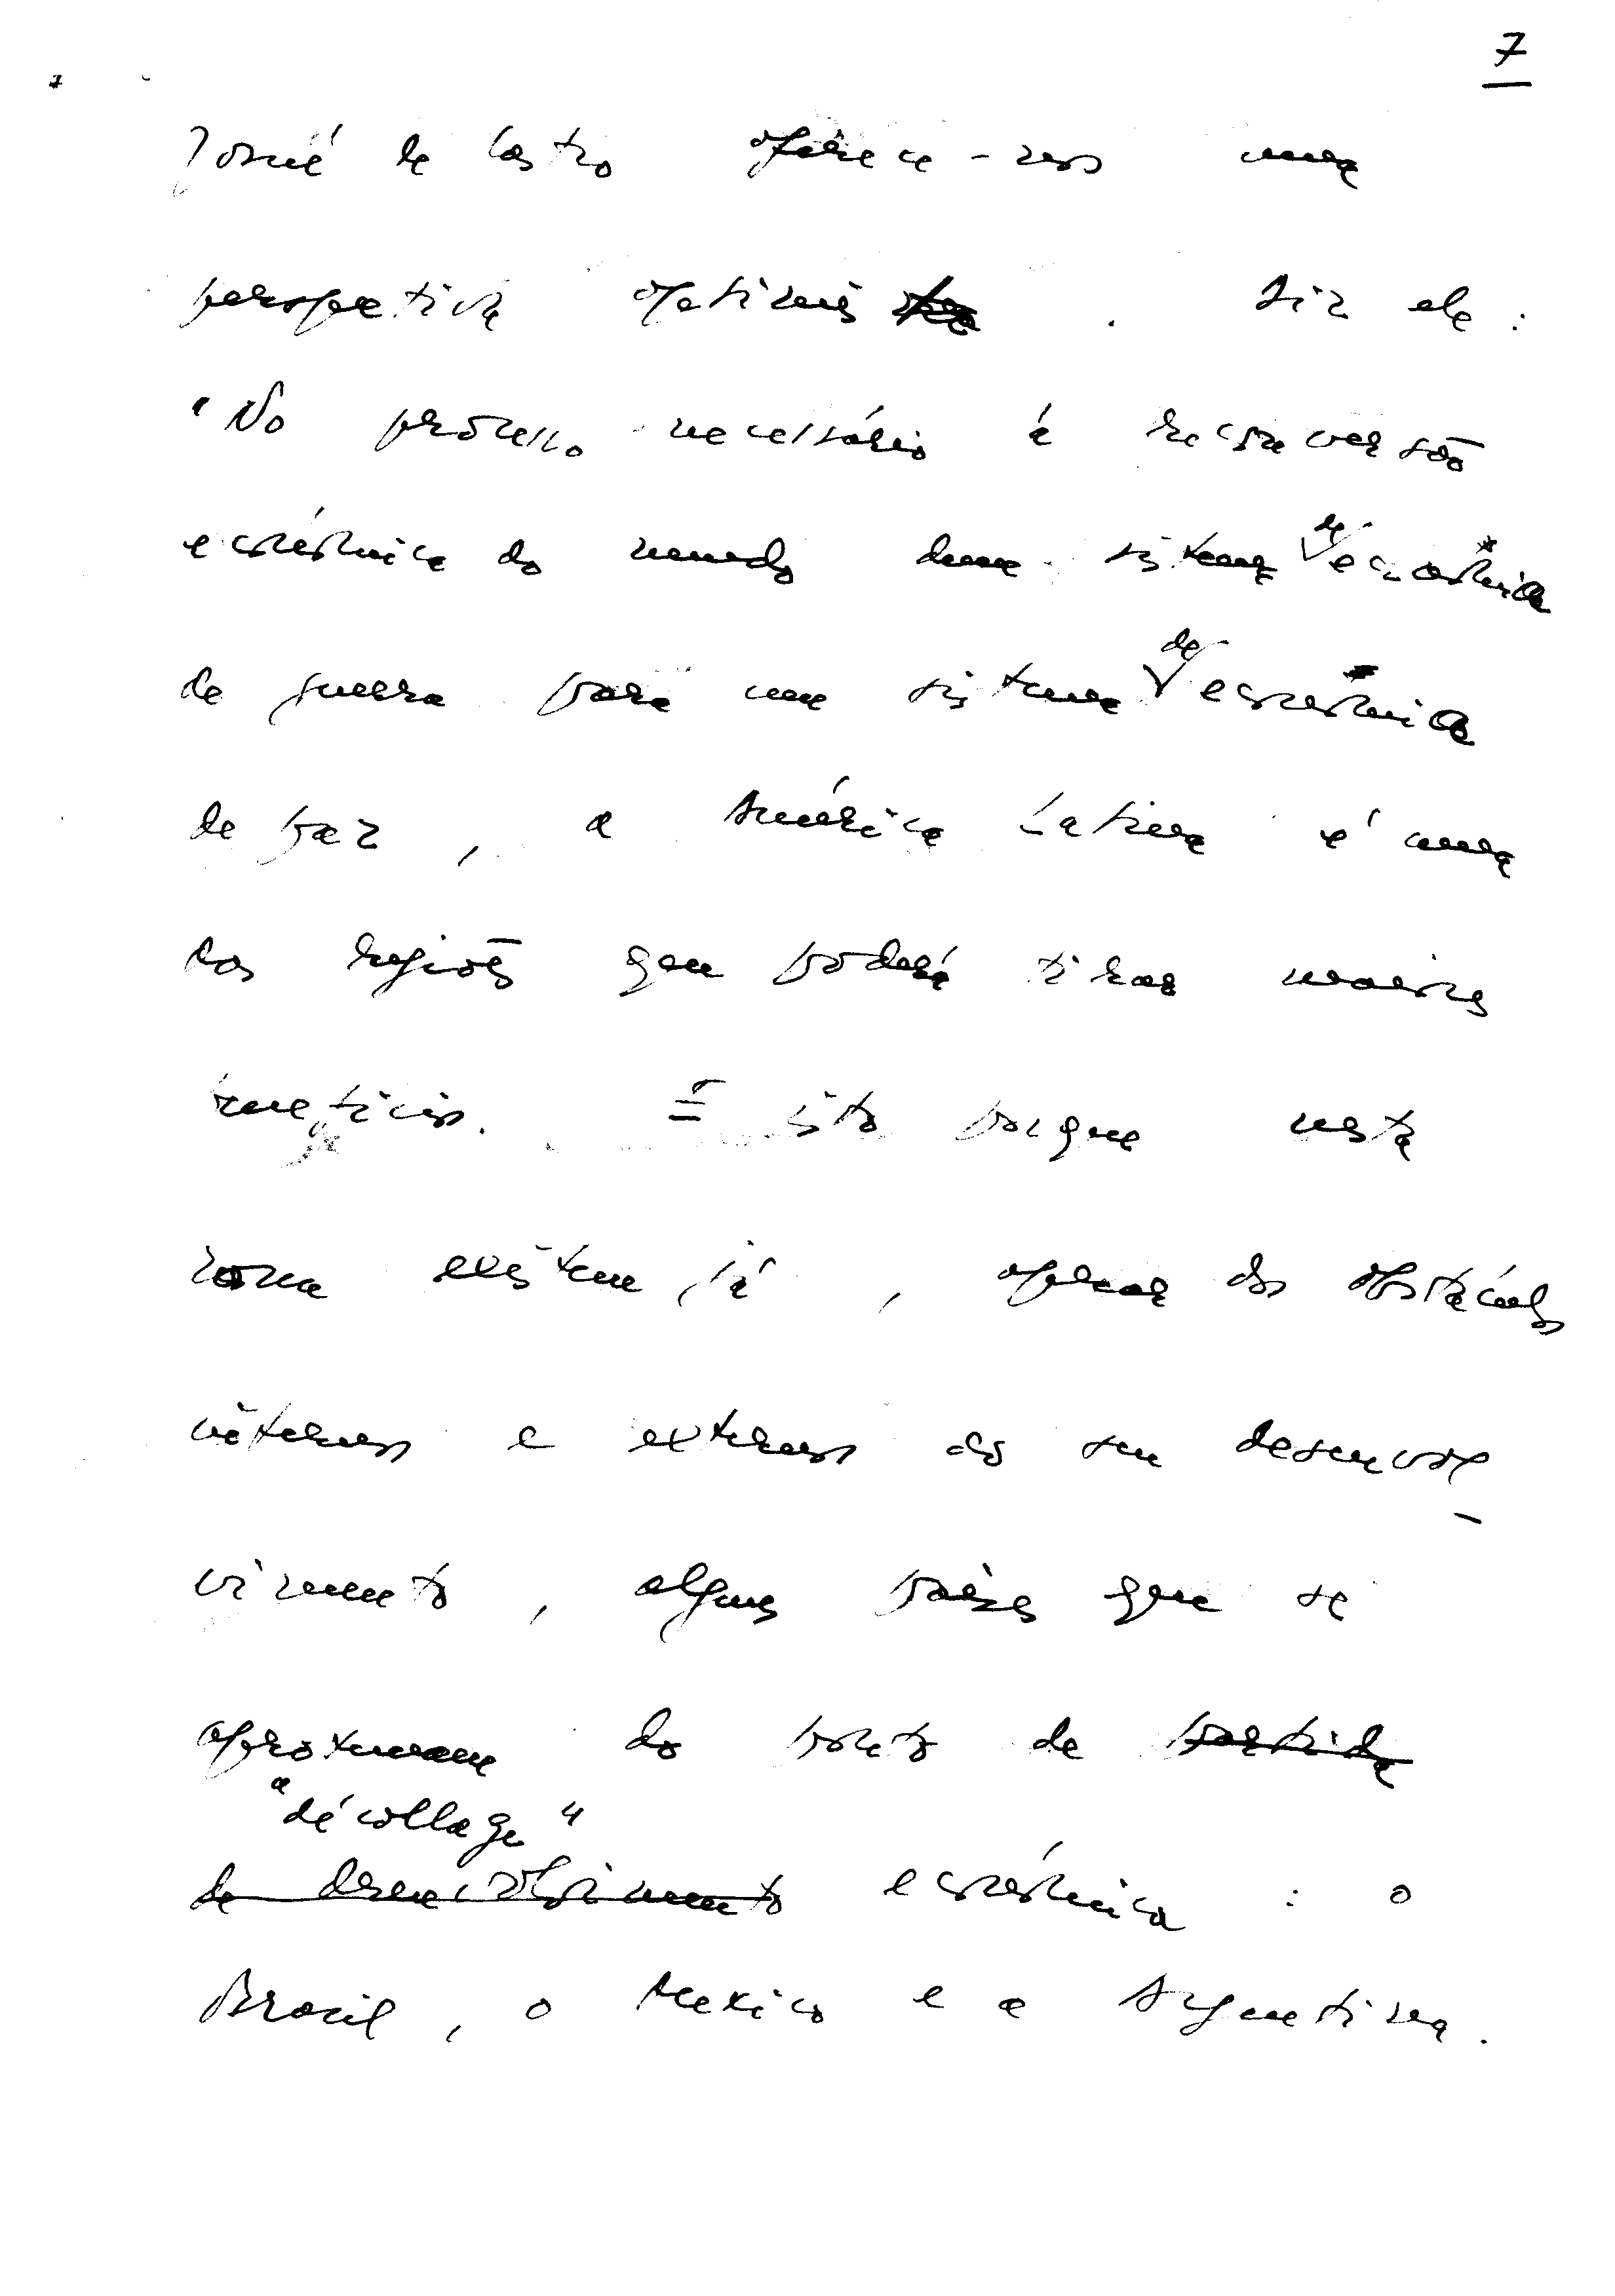 7
Josué de Castro oferece-nos uma
perspectiva optimista. Diz ele:
"No processo necessário à reconversão
económica do mundo dum sistema de economia
de guerra para um sistema de economia
de paz, a América Latina é uma
das regiões que poderá tirar maiores
benefícios. E isto porque nesta
zona existem já, apesar dos obstáculos
internos e externos do seu desenvol-
vimento, alguns países que se
aproximam do ponto de partida
"décollage"
de desenvolvimento económico: o
Brasil, o Mexico e a Argentina.